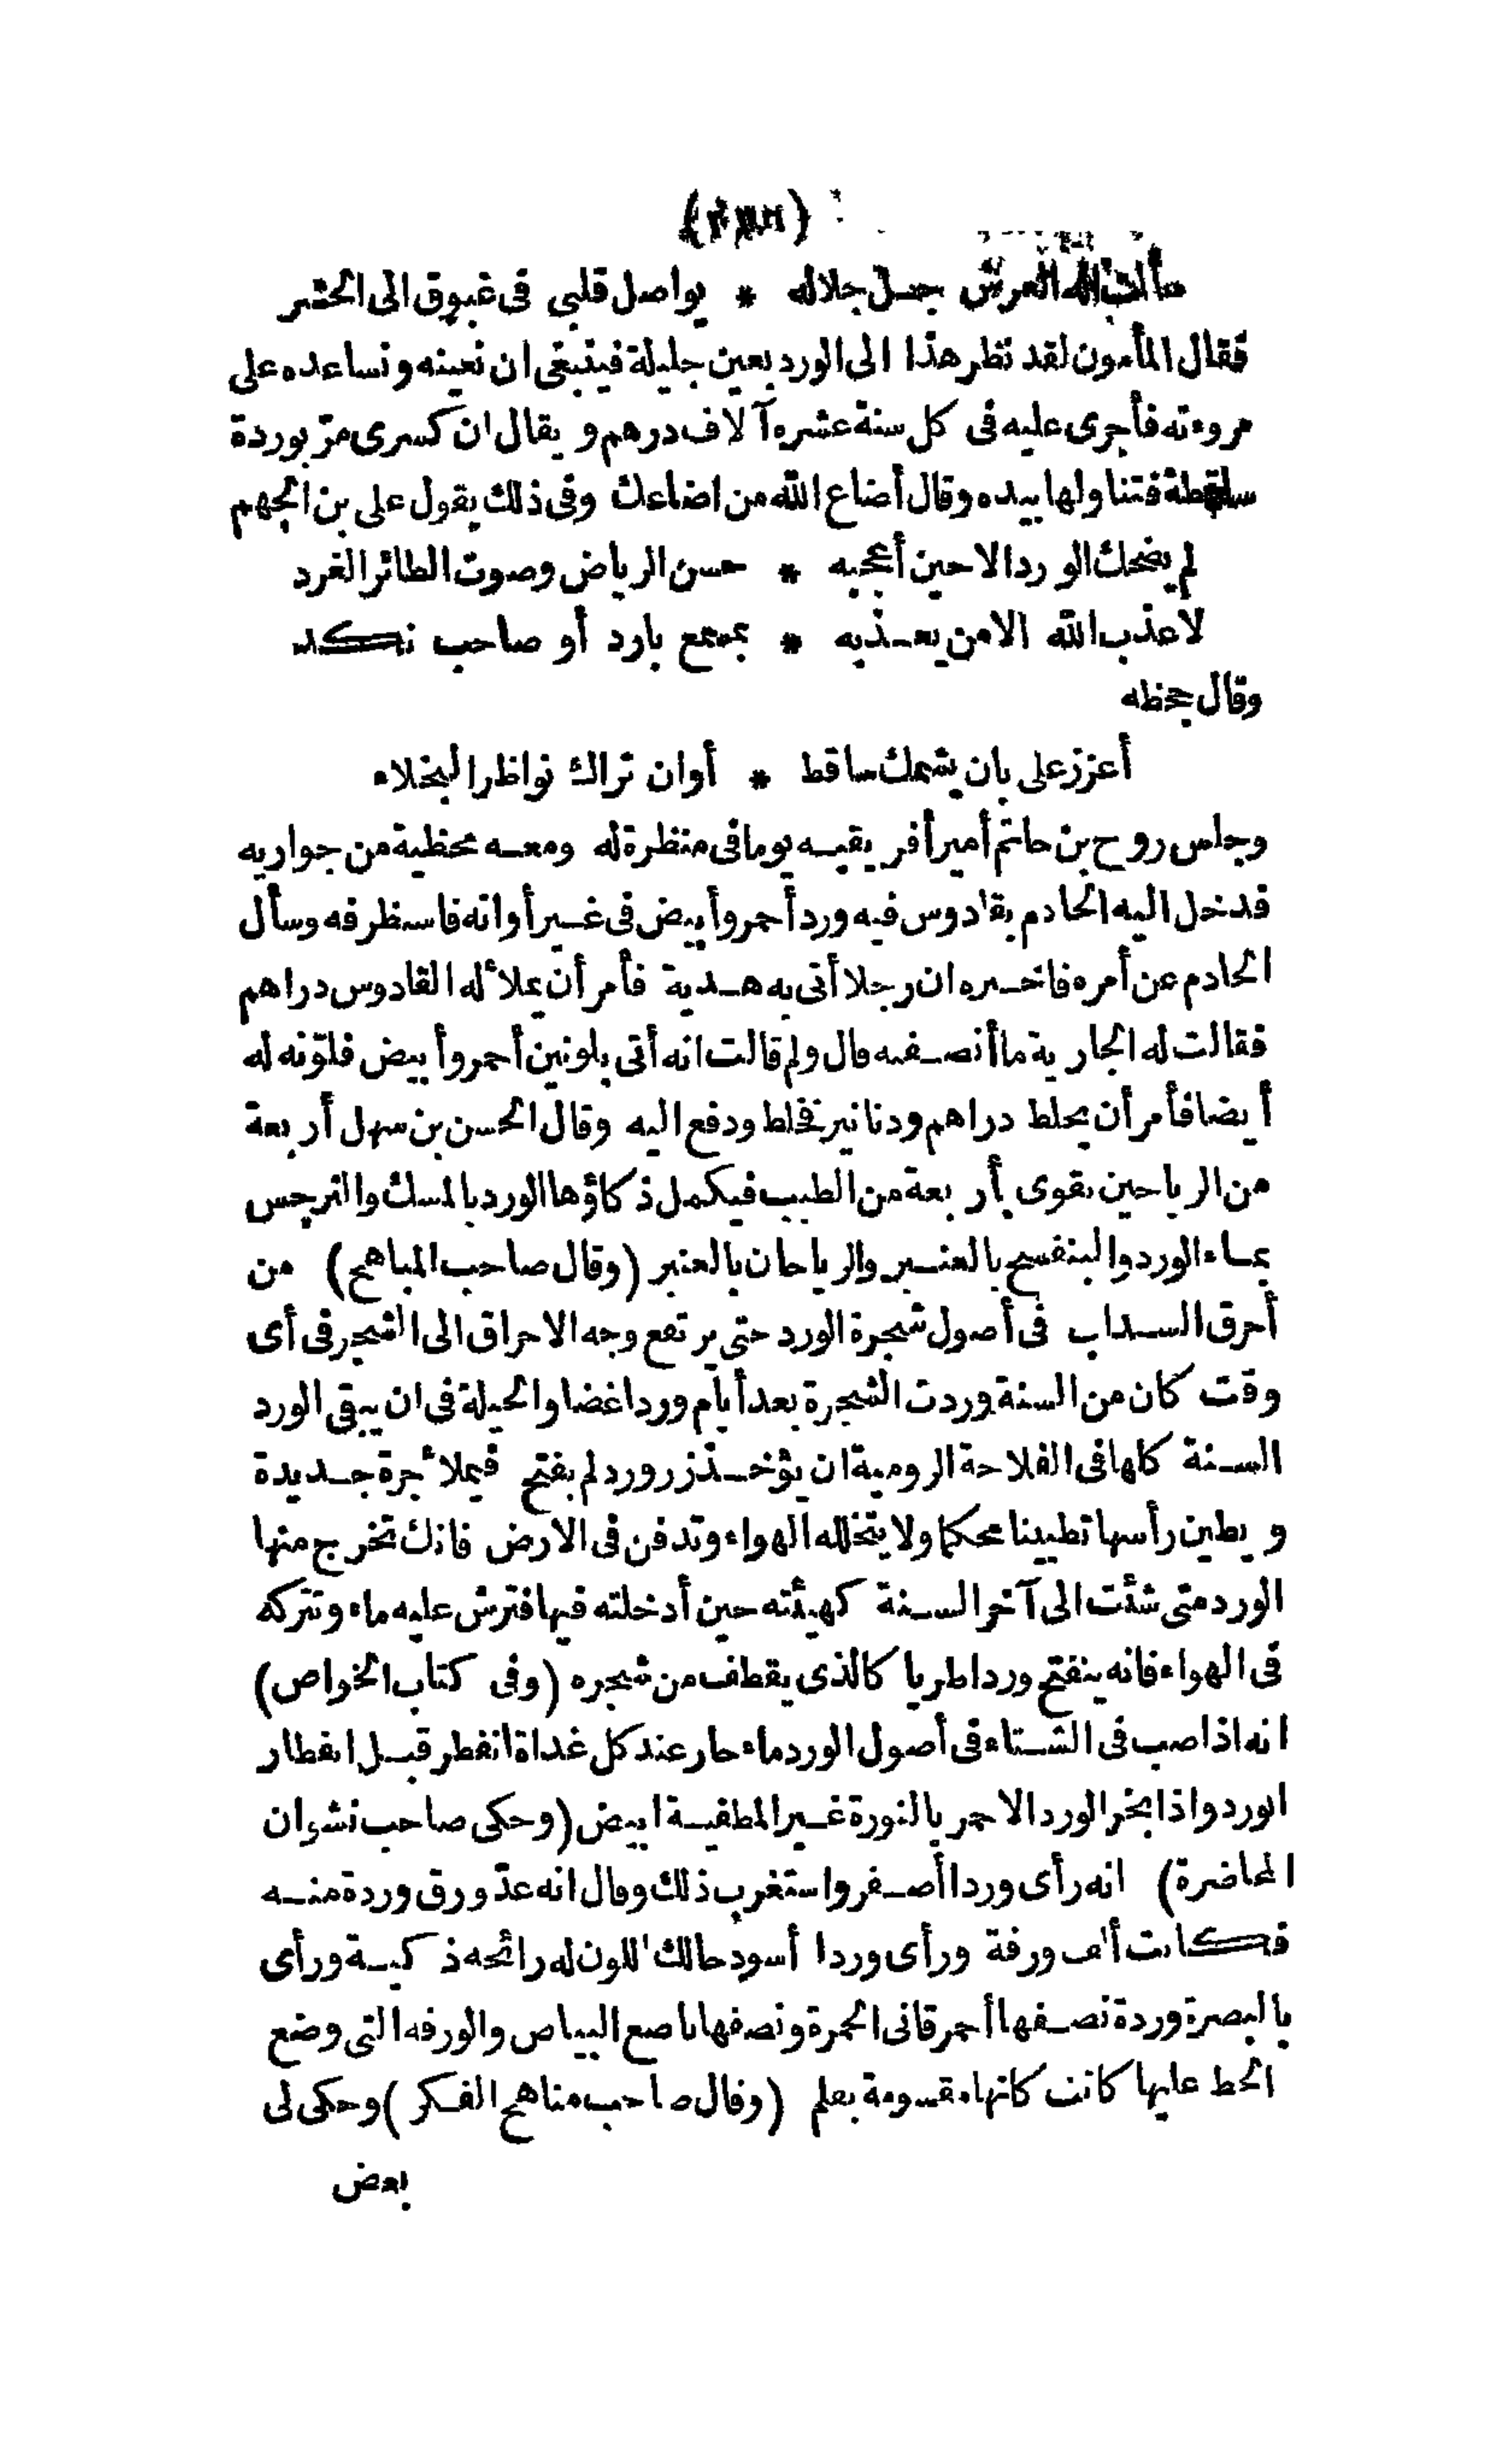 سألت اله العرش جل جلاله * يواصل قلبي فى غبوق الى الحشر
فقال المأمون لقد نظر هذا الى الورد بعين جليلة فينبغى ان نعينه ونساعده على
مروءته فأجرى عليه فى كل سنة عشره آلاف درهم ويقال ان كسرى مرّ بوردة
ساقطة فتناولها بيده وقال أضاع الله من اضاعك وفى ذلك يقول على بن الجهم
لم يضحك الورد الا حين أعجبه * حسن الرياض وصوت الطائر الغرد
لا عذب الله الا من يعذبه * بمسمع بارد أو صاحب نكد
وقال جحظه
أعزز على بان يشمك ساقط * أوان تراك نواظر البخلاء
وجلس روح بن حاتم أمير أفريقيه يوما فى منظرة له ومعه محظية من جواريه
فدخل اليه الخادم بقادوس فيه ورد أحمر وأبيض فى غير أوانه فاستظرفه وسأل
الخادم عن أمره فاخبره ان رجلا أتى به هدية فأمر أن يملأ له القادوس دراهم
فقالت له الجارية ما أنصفته قال ولم قالت انه أتى بلونين أحمر وأبيض فلوّنه له
أيضا فأمر أن يخلط دراهم ودنانير فخلط ودفع اليه وقال الحسن بن سهل أربعة
من الرياحين تقوى بأربعة من الطيب فيكمل ذكاؤها الورد بالمسك والنرجس
بماء الورد والبنفسج بالعنبر والرياحان بالعنبر (وقال صاحب المباهج) من
أحرق السداب فى أصول شجرة الورد حتى يرتفع وجه الاحراق الى الشجر فى أى
وقت كان من السنة وردت الشجرة بعد أيام وردا غضا والحيلة فى ان يبقى الورد
السنة كلها فى الفلاحة الرومية ان يؤخذ زر ورد لم يفتح فيملأ جرة جديدة
ويطين رأسها تطيينا محكما ولا يتخلله الهواء وتدفن فى الارض فانك تخرج منها
الورد متى شئت الى آخر السنة كهيئته حين أدخلته فيها فترش عليه ماء وتتركه
فى الهواء فانه ينفتح وردا طريا كالذى يقطف من شجره (وفى كتاب الخواص)
انه اذا صب فى الشتاء فى أصول الورد ماء حار عند كل غداة انفطر قبل انفطار
الورد واذا بخر الورد الاحمر بالنورة غير المطفية ابيض (وحكى صاحب نشوان
المحاضرة) انه رأى وردا أصفر واستغرب ذلك وقال انه عدّ ورق وردة منه
فكانت ألف ورقة ورأى وردا أسود حالك اللون له رائحه ذكية ورأى
بالبصرة وردة نصفها أحمر قانى الحمرة ونصفها ناصع البياض والورقه التى وضع
الخط عليها كانت كانها مقسومة بقلم (وقال صاحب مناهج الفكر) وحكى لى
بعض